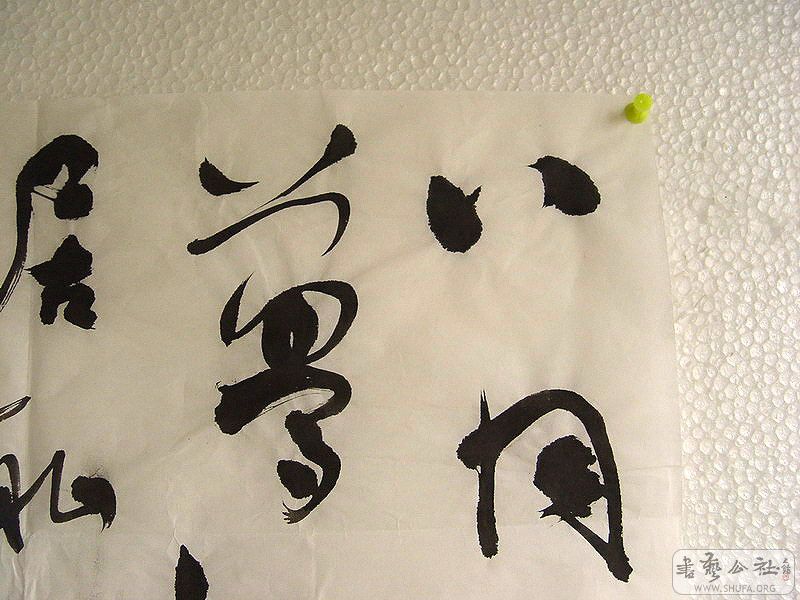 八月
夢
居耻
書藝公社
WWW.SHUFA.ORG